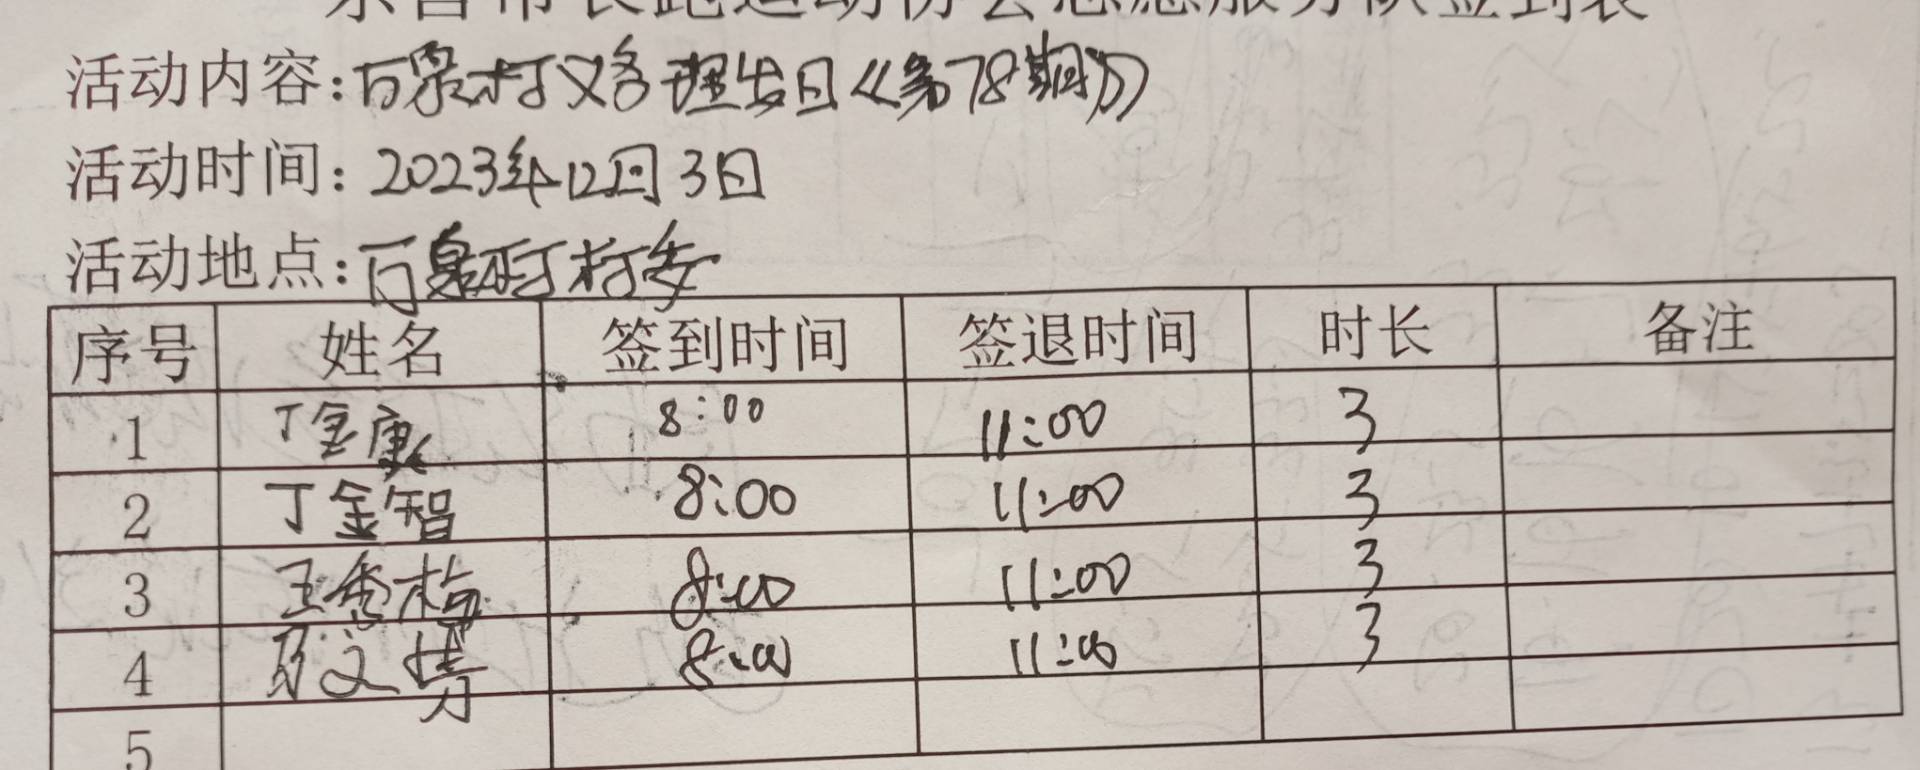 活动内容:万泉村义务理发日《第78期》
活动时间: 2023年12月3日
活动地点:万泉村村委
序号 姓名 签到时间 签退时间 时长 备注
1 丁金康 8:00 11:00 3
2 丁金智 8:00 11:00 3
3 王秀梅 8:00 11:00 3
4 8:00 11:00 3
5